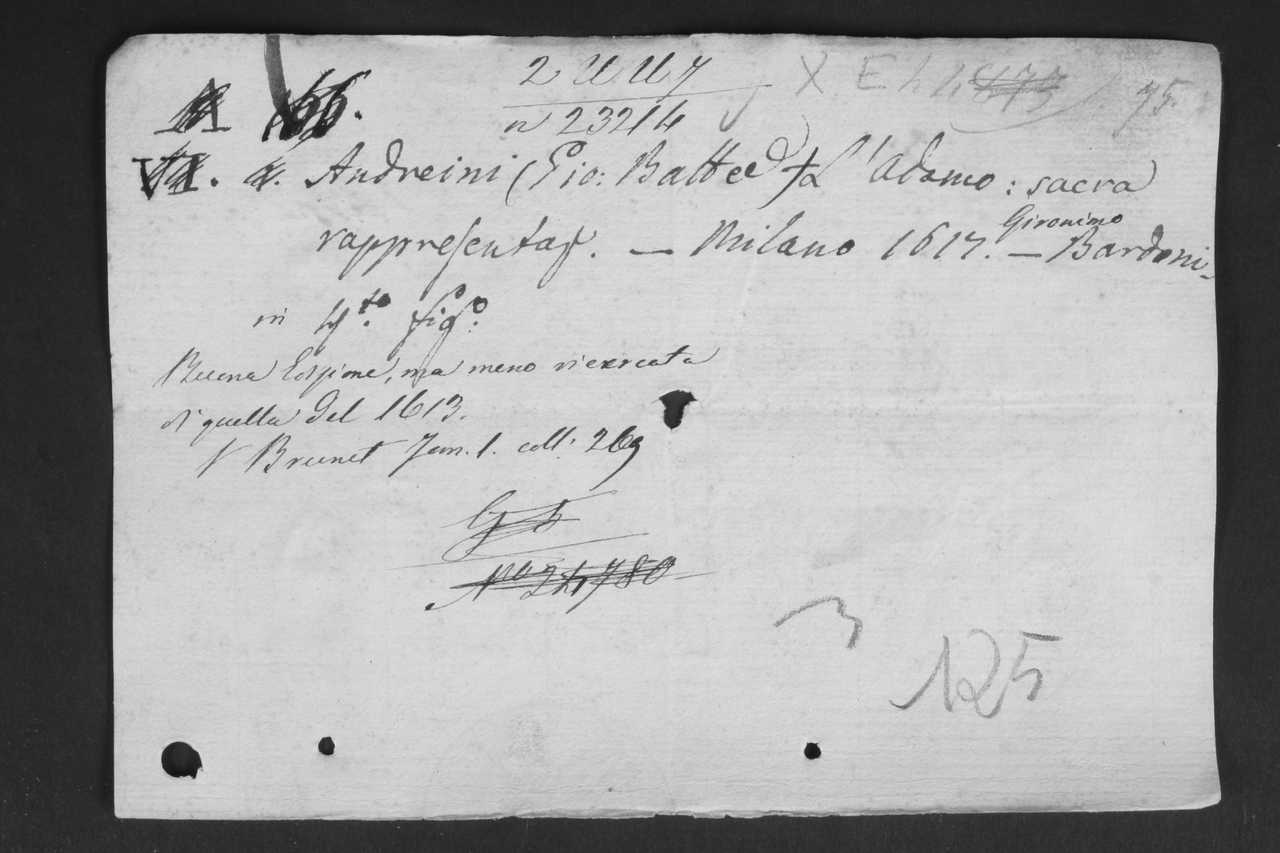 2 U U 7 X E h 4 75.
n 23214
VI. Andreini (Gio: Batt L'adamo: sacra
rappresentaz. — Milano 1617. — Gironimo Bardoni -
in 4.to figo.
Buona edizione, ma meno ricercata
di quella del 1613.
V Brunet Tom. 1. coll: 269
No 24780
3
125